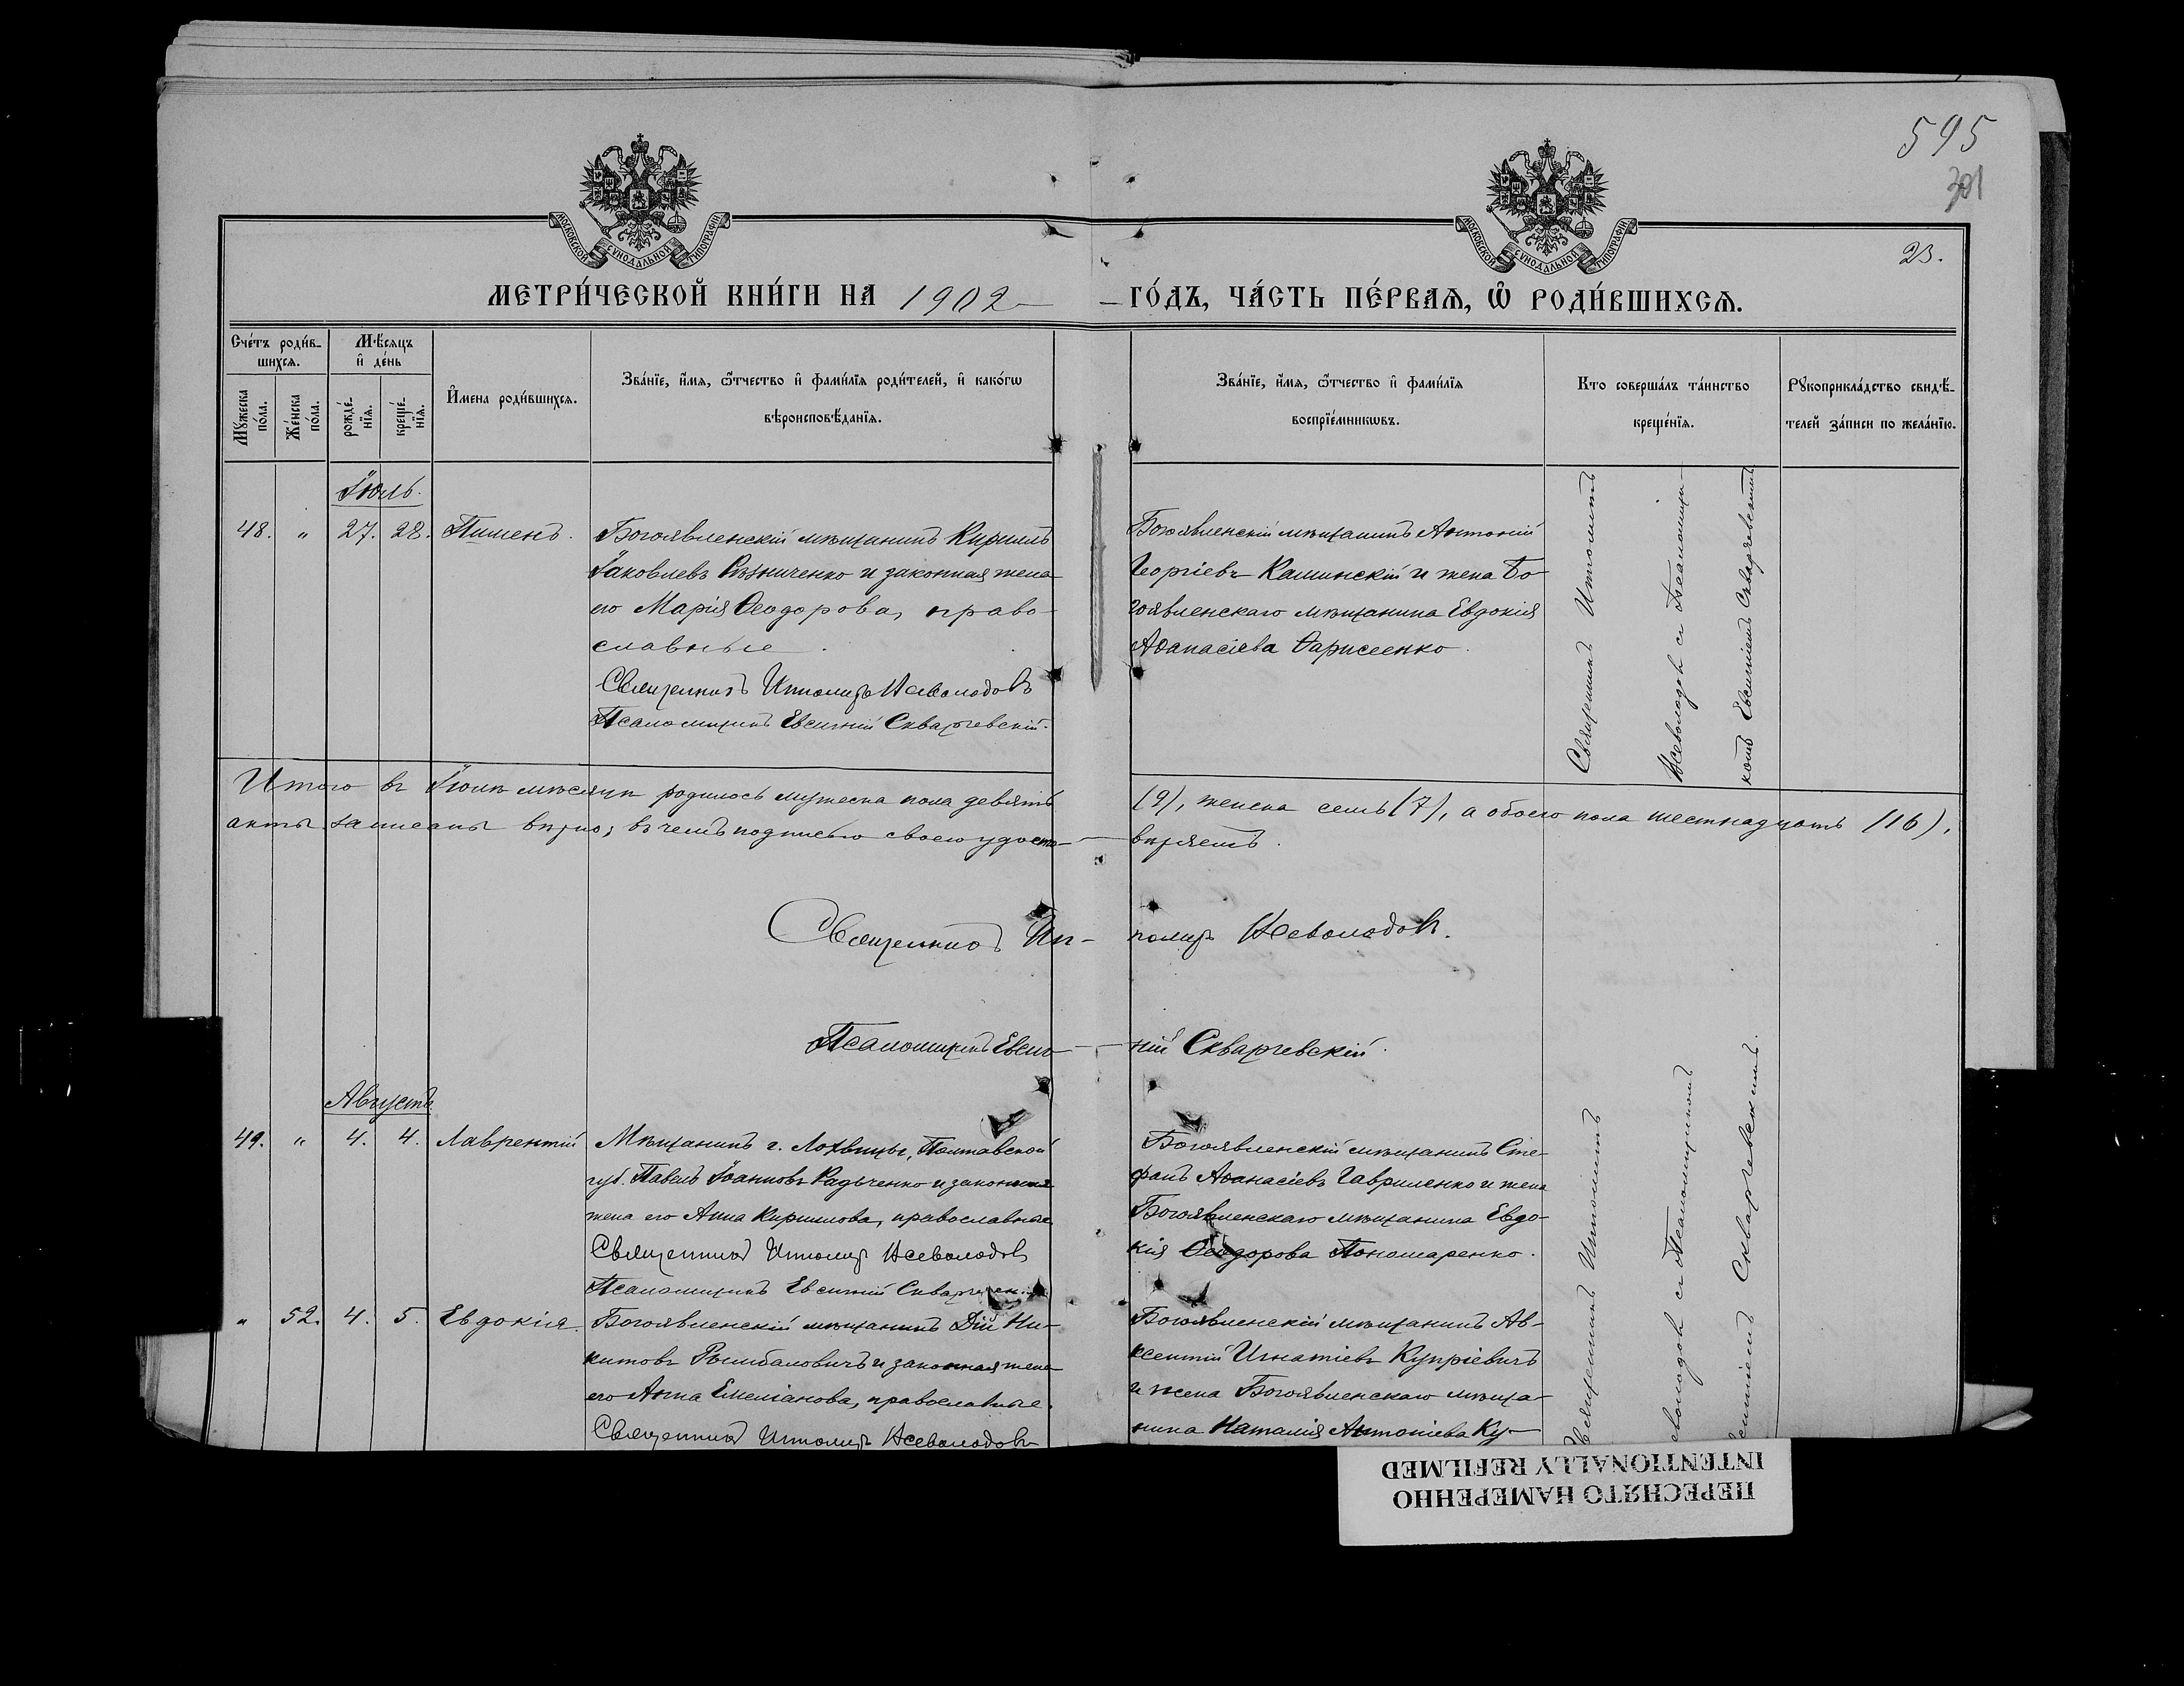 595
301
23.
МОСКОВСКОЙ СѴНОДАЛЬНОЙ ТИПОГРАФІИ
МОСКОВСКОЙ СѴНОДАЛЬНОЙ ТИПОГРАФІИ
МЕТРИ́ЧЕСКОЙ КНИ́ГИ НА 1902 ГО́ДЪ, ЧА́СТЬ ПЕ́РВАѦ, Ѽ РОДИ́ВШИХСѦ.
Сче́тъ роди́в-
шихсѧ.
Мѣ́сѧцъ
и҆ де́нь
Мꙋ́жеска по́ла.
Же́нска по́ла.
рожде́-
нїѧ.
креще́-
нїѧ.
И҆мена роди́вшихсѧ.
Зва́нїе, и҆́мѧ, ѻ҆́тчество и҆ фами́лїѧ роди́телей, и҆ како́гѡ
вѣроисповѣ́данїѧ.
Зва́нїе, и҆́мѧ, ѻ҆́тчество и҆ фами́лїѧ
воспрїе́мникѡвъ.
Кто соверша́лъ та́инство
креще́нїѧ.
Рꙋкоприкла́дство свидѣ́-
телей за́писи по жела́нїю.
Іюль.
48. " 27. 28. Пименъ.
Богоявленскій мѣщанинъ Кириллъ
Іаковлевъ Рѣзниченко и законная жена
его Марія Ѳеодорова, право-
славные.
Священникъ Ипполитъ Всеволодовъ
Псаломщикъ Евсигній Скваржевскій.
Богоявленскій мѣщанинъ Антоній
Георгіевъ Калинскій и жена Бо-
гоявленскаго мѣщанина Евдокія
Аѳанасіева Фарисеенко.
Священникъ Ипполитъ
Всеволодовъ съ Псаломщи-
комъ Евсигніемъ Скваржевскимъ
Итого въ Іюлѣ мѣсяцѣ родилось мужеска пола девять (9), женска семь (7), а обоего пола шестнадцать (16),
акты записаны вѣрно; въ чемъ подписью своею удосто- вѣряемъ.
Священникъ Ип- политъ Всеволодовъ.
Псаломщикъ Евсиг- ній Скваржевскій.
Августъ.
49. " 4. 4. Лаврентій
Мѣщанинъ г. Лохвицы, Полтавской
губ. Павелъ Іоанновъ Радченко и законная
жена его Анна Кириллова, православные.
Священникъ Ипполитъ Всеволодовъ
Псаломщикъ Евсигній
Богоявленскій мѣщанинъ Сте-
фанъ Аѳанасіевъ Гавриленко и жена
Богоявленскаго мѣщанина Евдо-
кія Ѳеодорова Пономаренко.
" 52. 4. 5. Евдокія.
Богоявленскій мѣщанинъ Дій Ни-
китовъ Рымбаловичъ и законная жена
его Анна Емеліанова, православные.
Священникъ Ипполитъ Всеволодовъ
Богоявленскій мѣщанинъ Ав-
ксентій Игнатіевъ Купріевичъ
и жена Богоявленскаго мѣща-
нина Наталія Антоніева Ку-
Священникъ Ипполитъ
Всеволодовъ съ Псаломщикомъ
Евсигніемъ Скваржевскимъ.
ПЕРЕСНЯТО НАМЕРЕННО
INTENTIONALLY REFILMED